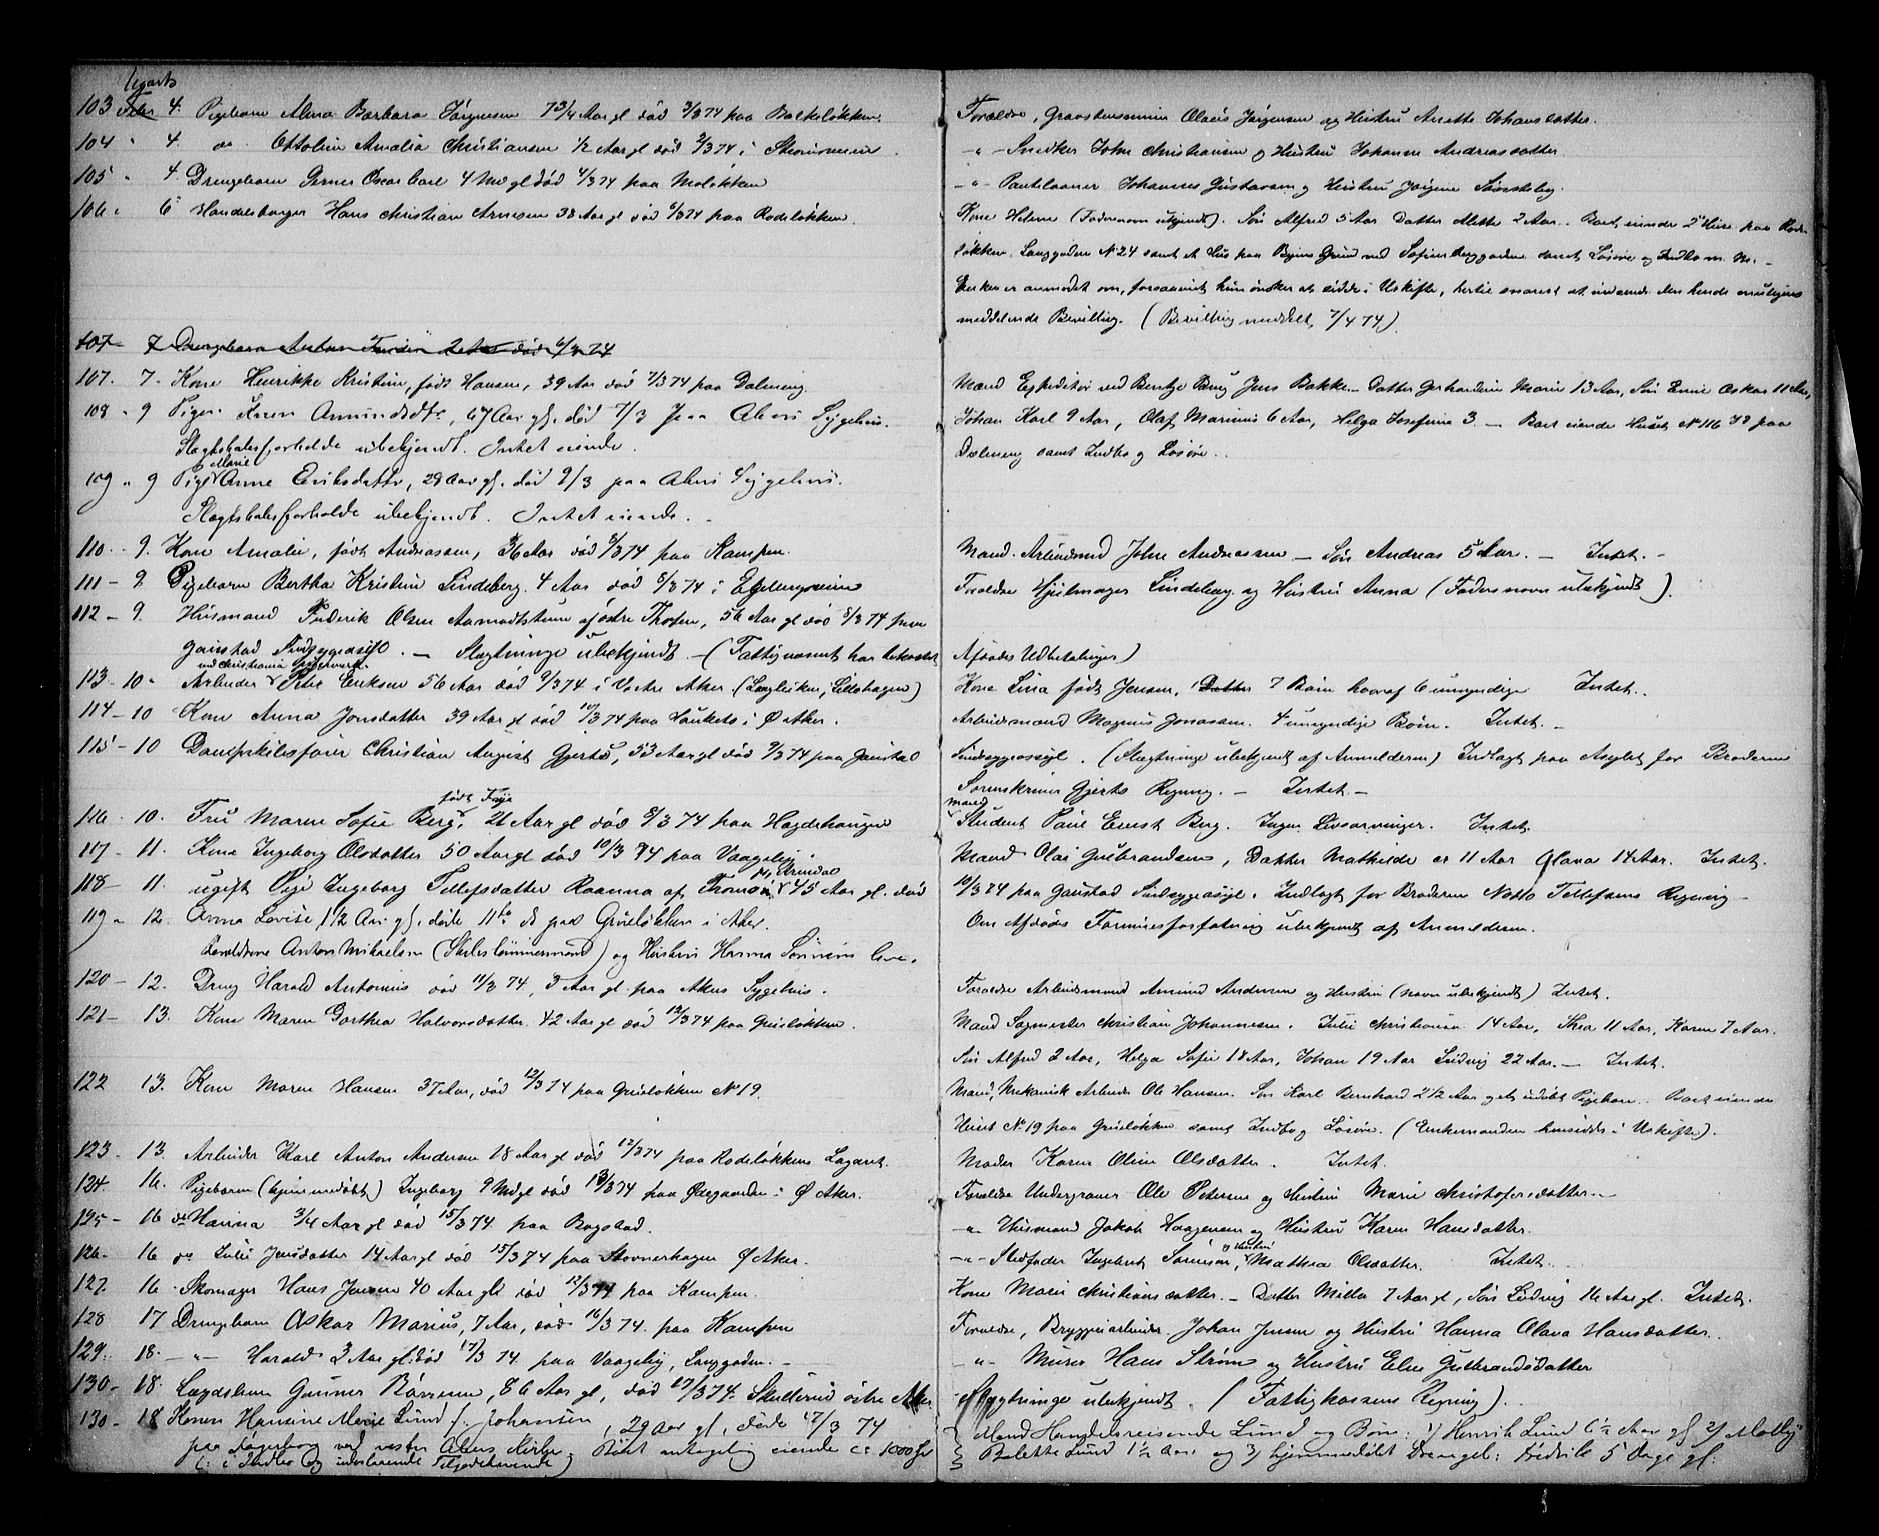 Marts
103 Febr. 4. Pigebarn Alma Barbara Jørgensen 7 3/4 Aar gl død 3/3 74 paa Bakkeløkken.
Forældre, Graastensminer Olaus Jørgensen og Hustru Anette Johansdatter.
104 " 4. do. Ottoline Amalia Christiansen 1/2 Aar gl død 2/3 74 i
-"- Snedker John Christiansen og Hustru Johanne Andreasdatter.
105 " 4. Drengebarn Oscar Carl 4 Md gl død 4/3 74 paa
-"- Johannes Gustavsen og Hustru Jørgine
106 " 6 Handelsborger Hans Christian Arnesen 38 Aar gl død 6/3 74 paa Rodeløkken.
Kone Helene (Fadersnavn ubekjendt). Søn Alfred 5 Aar Datter Alette 2 Aar. Boet eiende 2 Huse paa Rode-
løkken, Langgaden No 24 samt et Hus paa Byens Grund ved Sofienberggaden samt Løsøre og Indbo m. m. -
Enken er anmodet om, forsaavidt hun ønsker at sidde i Uskifte, hertil snarest at indsende den hende
meddelende Bevilling. (Bevilling meddelt 7/4 74)
107 - 7 Drengebarn Anton 2 Aar død 6/3 74
107. 7. Kone Henrikke Kristine, født Hansen, 39 Aar død 7/3 74 paa Dæleneng.
Mand Expeditør ved Brug Jens Bakke - Datter Gerhardine Marie 13 Aar, Søn Oskar 11 Aar,
108 " 9 Pige Karen Amundsdtr, 67 Aar gl. død 7/3 paa Akers Sygehus.
Johan Karl 9 Aar, Olaf Marinius 6 Aar, Helga Josefine 3 - Boet eiende Huset No 116 paa
Slægtskabsforholde ubekjendt. Intet eiende.
Dæleneng samt Indbo og Løsøre.
109 " 9 Pige Marie Anne Eriksdatter, 29 Aar gl. død 9/3 paa Akers Sygehus.
Slægtskabsforholde ubekjendt. Intet eiende.
110 - 9. Kone Amalie, født Andreassen, 36 Aar død 8/3 74 paa Kampen.
Mand. Arbeidsmand John Andreassen - Søn Andreas 5 Aar. - Intet. -
111 - 9 Pigebarn Bertha Kristine Lindeberg. 4 Aar død 8/3 74 i
Forældre Hjulmager Lindeberg og Hustru Anna (Fadersnavn ubekjendt).
112 - 9. Husmand Frederik Olsen af østre Thoten, 56 Aar gl død 8/3 74 paa
Gaustad Sindsygeasyl. - Slægtninge ubekjendt - (Fattigvæsenet har bekostet
Afdødes Udbetalinger)
ved Christiania Spigerverk.
113 - 10 " Arbeider Peter Eriksen 56 Aar død 9/3 74 i Vestre Aker (Langliken, Lillehagen)
Kone Lina født Jensen, Datter 7 Børn hvoraf 6 umyndige Intet.
114 - 10 Kone Anna Jonsdatter 39 Aar gl død 10/3 74 paa Hauketo i Ø Aker.
Arbeidsmand Magnus Jonassen. 4 umyndige Børn. Intet. -
115 - 10 Dampskibsfører Christian August Gjerts, 53 Aar gl død 9/3 74 paa Gaustad
Sindsygeasyl. (Slægtninge ubekjendt af Anmelderen) Indlagt paa Asylet for Broderen
Sorenskriver Gjerts Regning. - Intet. -
116. 10. Fru Maren Sofie Berg, født Faye 21 Aar gl død 8/3 74 paa Hægdehaugen
Mand Student Paul Ernst Berg. Ingen Livsarvinger. Intet.
117 - 11. Kone Ingeborg Olsdatter 50 Aar gl død 10/3 74 paa Vaalegi.
Mand Olai Gulbrandsen, Datter Mathilde er 11 Aar Olava 14 Aar. Intet.
118 - 11. ugift Pige Ingeborg Tellefsdatter Raanna af Arendal 45 Aar gl. død
10/3 74 paa Gaustad Sindsygeasyl. Indlagt for Broderen Tellefsens Regning -
119 " 12. Anna Lovise, 1/2 Aar gl, døde 11te ds paa Grüneløkken i Aker.
Om Afdødes Formuesforfatning ubekjendt af Anmelderen.
Forældrene Anton Mikaelsen (Skibstømmermand) og Hustru Hanna leve.
120 - 12. Dreng Harald Antonius død 11/3 74, 3 Aar gl paa Akers Sygehus.
Forældre Arbeidsmand Amund Andersen og Hustru (Navn ubekjendt) Intet.
121 - 13. Kone Maren Dorthea Halvorsdatter. 42 Aar gl død 12/3 74 paa Grüneløkken.
Mand Sagmester Christian Johannesen. Julie Christiania 14 Aar, Thea 11 Aar, Karen 7 Aar.
Søn Alfred 2 Aar, Helga Sofie 18 Aar, Johan 19 Aar Ludvig 22 Aar. - Intet.
122 13. Kone Maren Hansen 37 Aar, død 12/3 74 paa Grüneløkken No 19.
Mand, Mekanisk Arbeider Ole Hansen. Søn Karl Bernhard 2 1/2 Aar og et udøbt Pigebarn. Boet eiende
Huset No 19 paa Grüneløkken samt Indbo og Løsøre. (Enkemanden hensidder i Uskifte).
123 - 13. Arbeider Karl Anton Andersen 18 Aar gl død 12/3 74 paa Rodeløkkens Lazaret.
Moder Karen Oline Olsdatter. Intet.
124. 16. Pigebarn (hjemmedøbt) Ingeborg 9 Md gl død 13/3 74 paa Ødegaarden i Ø Aker.
Forældre Undergraver Ole Petersen og Hustru Marie Christofersdatter. -
125 - 16 do Hanna 3/4 Aar gl død 15/3 74 paa Bogstad.
-"- Husmand Jakob Haagensen og Hustru Karen Hansdatter.
126 - 16 do Julie Jensdatter 14 Aar gl død 15/3 74 paa Stovnerhagen Ø Aker.
-"- Stedfader Ingebret Sørensen og Hustru Mathea Olsdatter. Intet.
127. 16 - Skomager Hans Jensen 40 Aar gl død 12/3 74 paa Kampen.
Kone Marie Christiansdatter. - Datter Milla 7 Aar gl, Søn Ludvig 16 Aar gl. Intet.
128 17 Drengebarn Oskar Marius, 7 Aar, død 16/3 74. paa Kampen
Forældre, Bryggeriarbeider Johan Jensen og Hustru Hanna Olava Hansdatter.
129. 18. -"- Harald 2 Aar gl. død 17/3 74. paa Vaalegi, Langgaden. -
-"- Murer Hans Strøm og Hustru Elen Gulbrandsdatter
130 - 18. Lægdslem Gunner Børresen, 86 Aar gl, død 17/3 74. Skullerud østre Aker.
Slægtninge ubekjendt. (Fattigkassens Regning).
130 - 18 Konen Hansine Marie Lund f. Johansen, 29 Aar gl, døde 17/3 74
Mand Handelsreisende Lund og Børn: 1) Henrik Lund 6 1/2 Aar gl 2) Molly
paa ved vestre Akers Kirke, Boet antagelig eiende ca 1000 Spd
Bolette Lund 1 1/2 Aar og 3) hjemmedøbt Drengeb: Fredrik 5 Dage gl.
(: i Indbo og udestaaende Tilgodehavende)